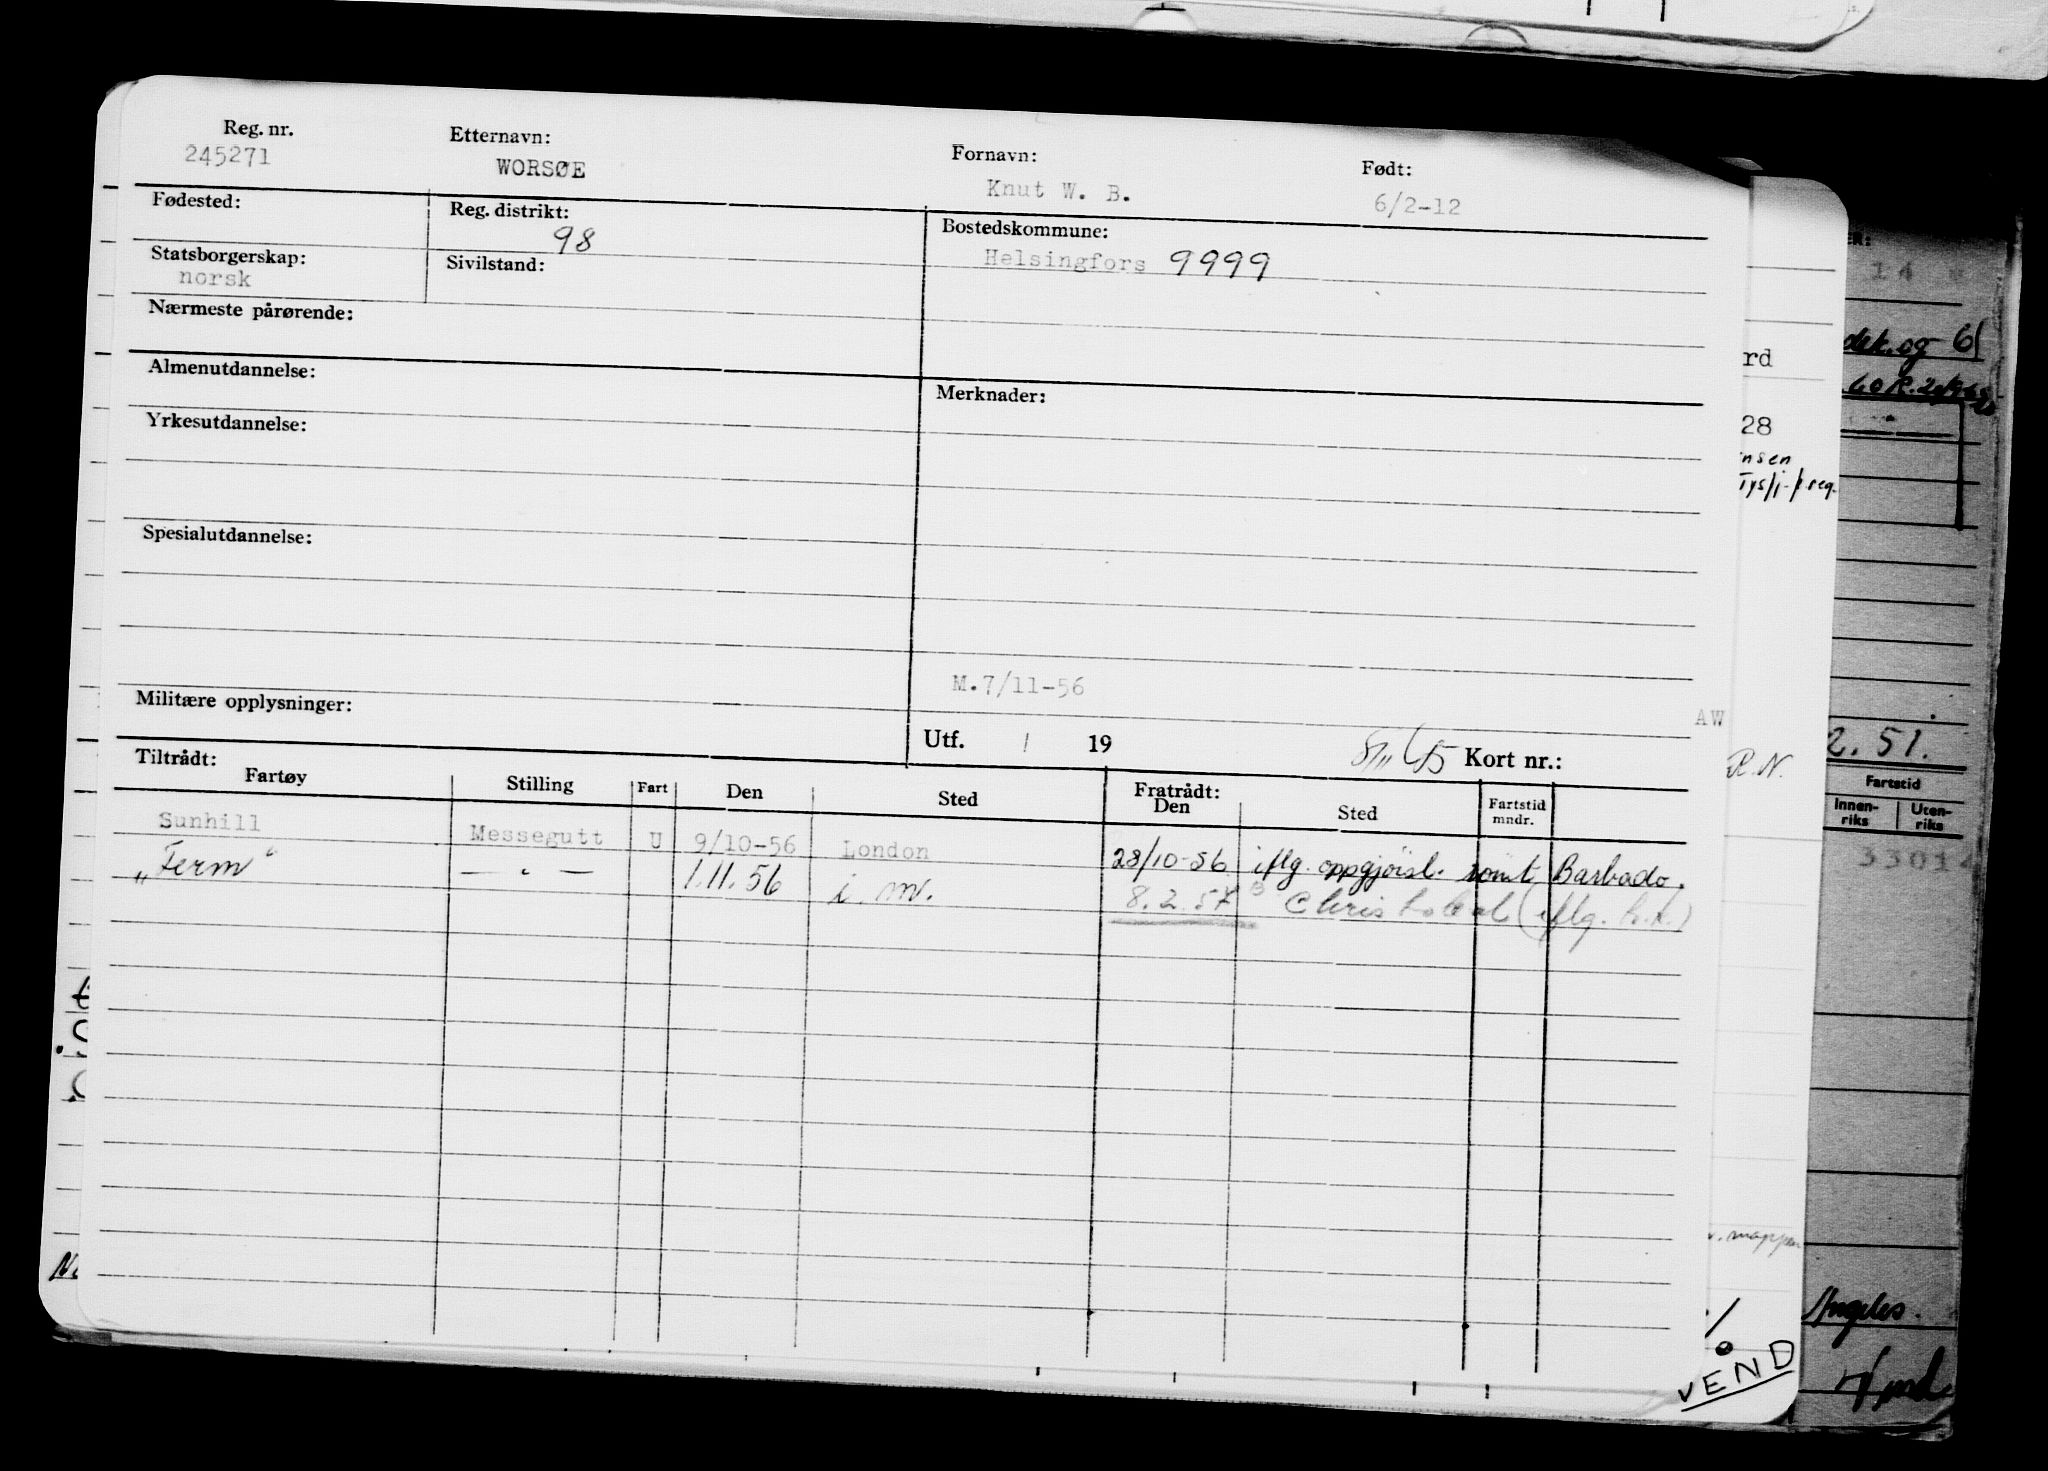 Reg. nr. Etternavn: Fornavn: Født:
245271 WORSØE Knut W. B. 6/2-12
Fødested: Reg. distrikt: 98 Bostedskommune:
Statsborgerskap: Sivilstand: Helsingfors 9999
norsk
Nærmeste pårørende:
Almenutdannelse: Merknader:
Yrkesutdannelse:
Spesialutdannelse:
M.7/11-56
Militære opplysninger:
AW
Utf. / 19 Kort nr.:
R.N.
Tiltrådt: Fratrådt:
Fartøy Stilling Fart Den Sted Den Sted Fartstid mndr.
Sunhill Messegutt U 9/10-56 London 28/10-56 iflg. oppgjörsl. rømt Barbado.
"Ferm" — " — 1.11.56 i. m. 8.2.57 (iflg.
VEND
ER:
14
dek. og
rd
28
nsen
2.51.
Fartstid
Innen-riks Uten-riks
33014
. mappen
Angeles.